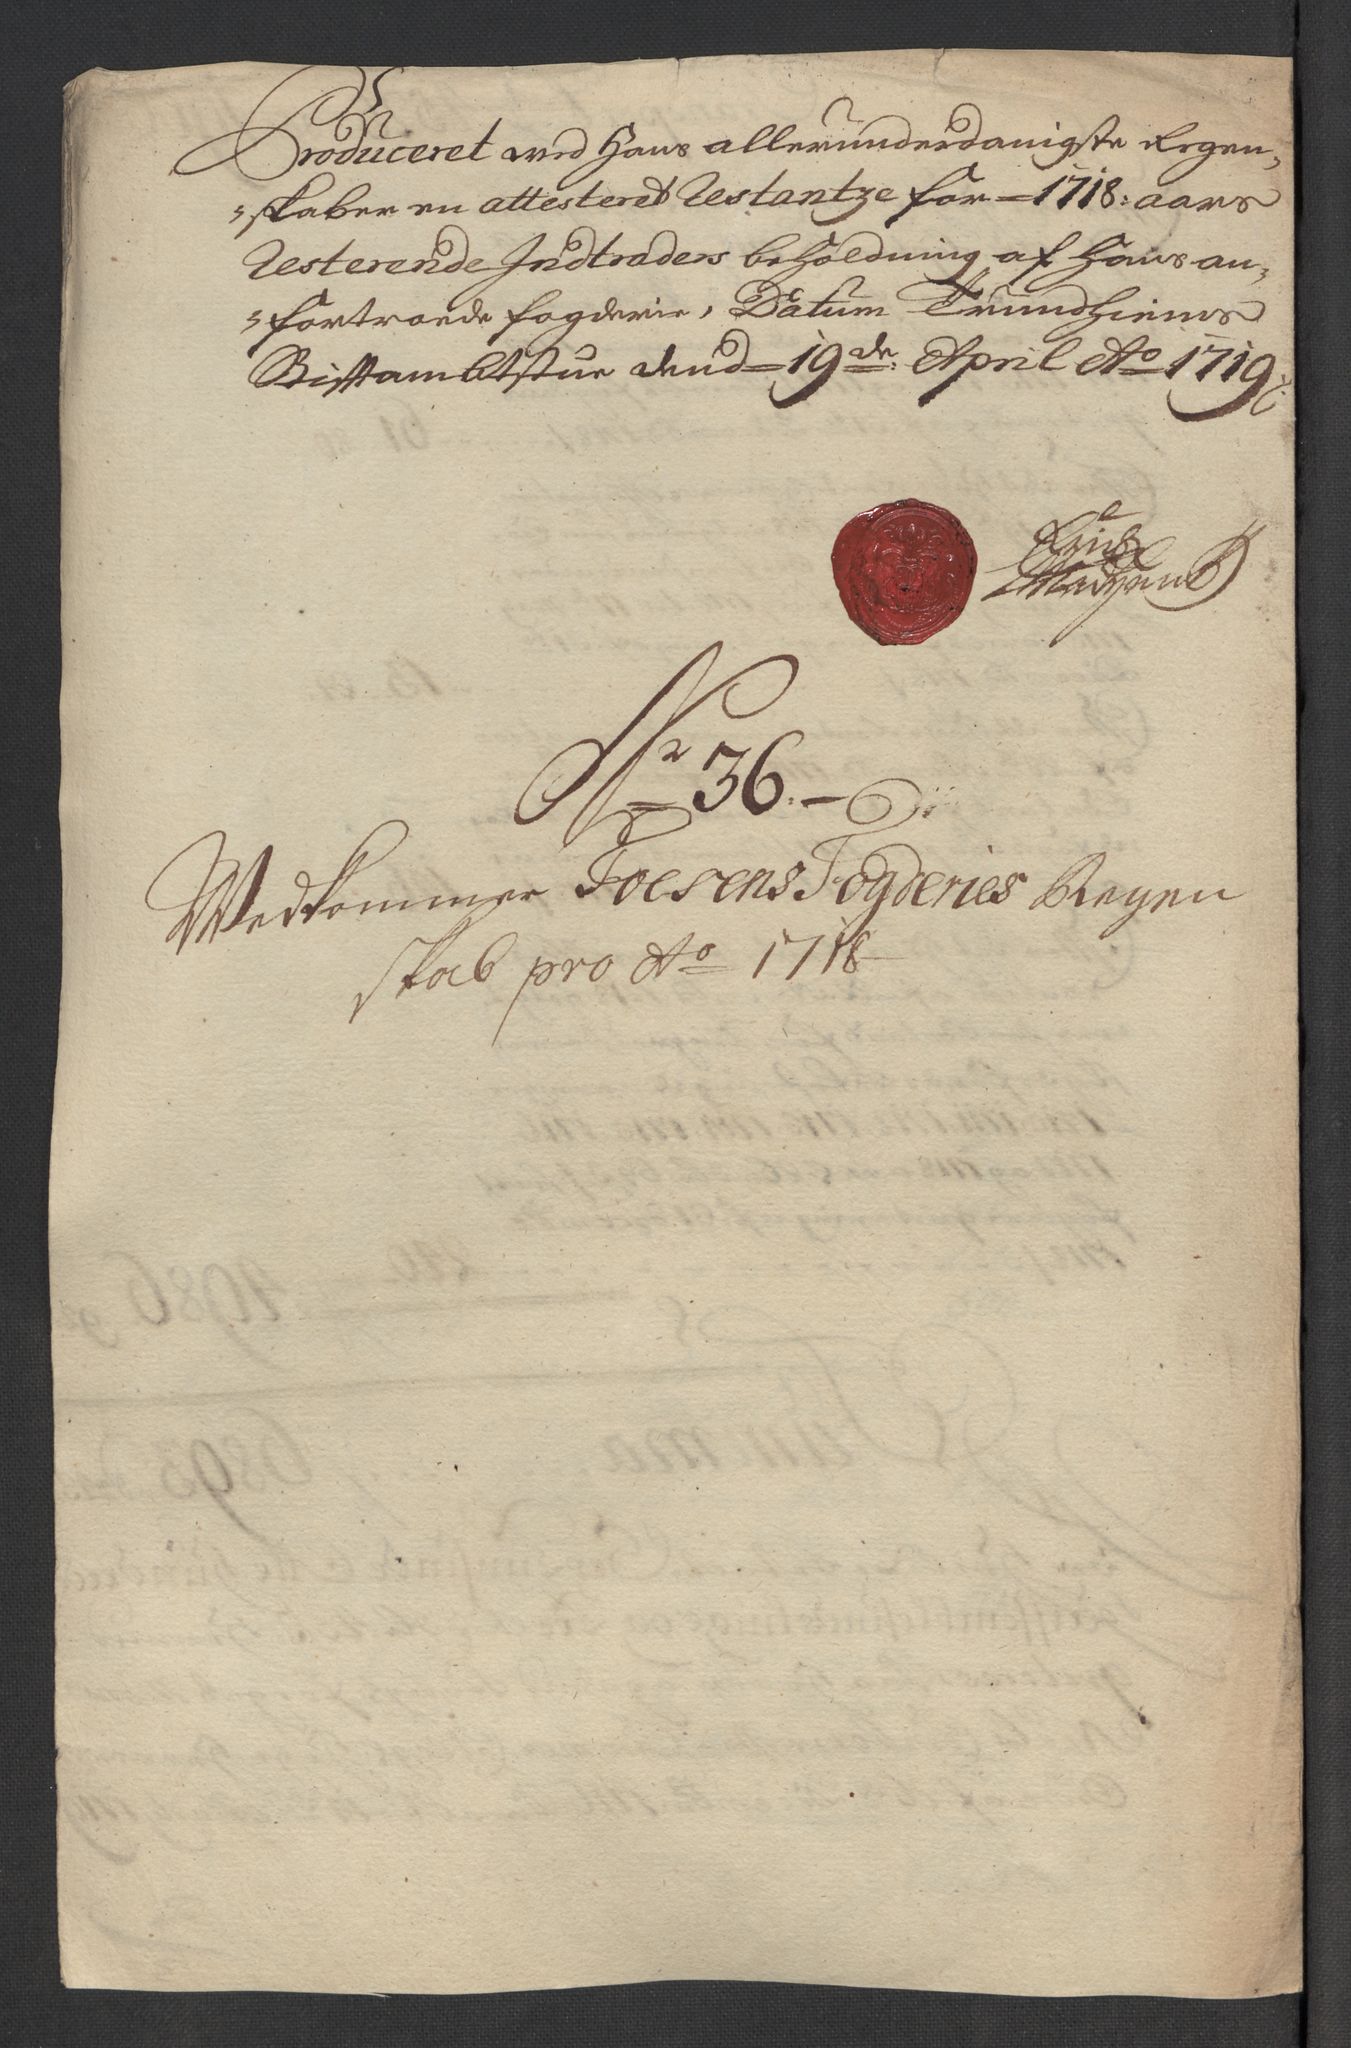 Produceret ved Hans allerunderdanigste Regen,
"skaber en attesteret Restantze for 1718: aars
Resterende Indtraders beholdning af Hans an,
"fortroede fogderie, Datum Trundhiems
Stiftambtstue dend 19de: April Ao 1719
Nr 36.
Vedkommer Foesens Fogderies Regen
skab pro Ao 1718